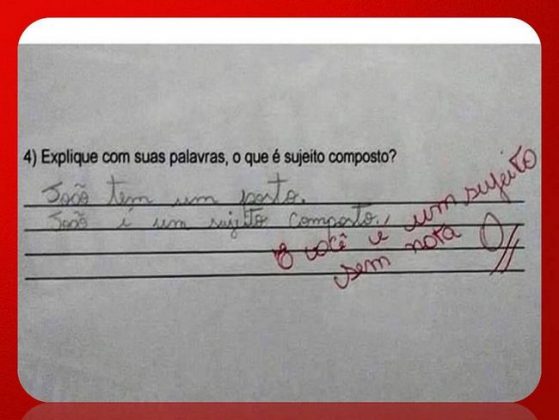 4) Explique com suas palavras, o que é sujeito composto?
João tem um porto.
João é um sujeito composto.
E você é um sujeito
sem nota 0